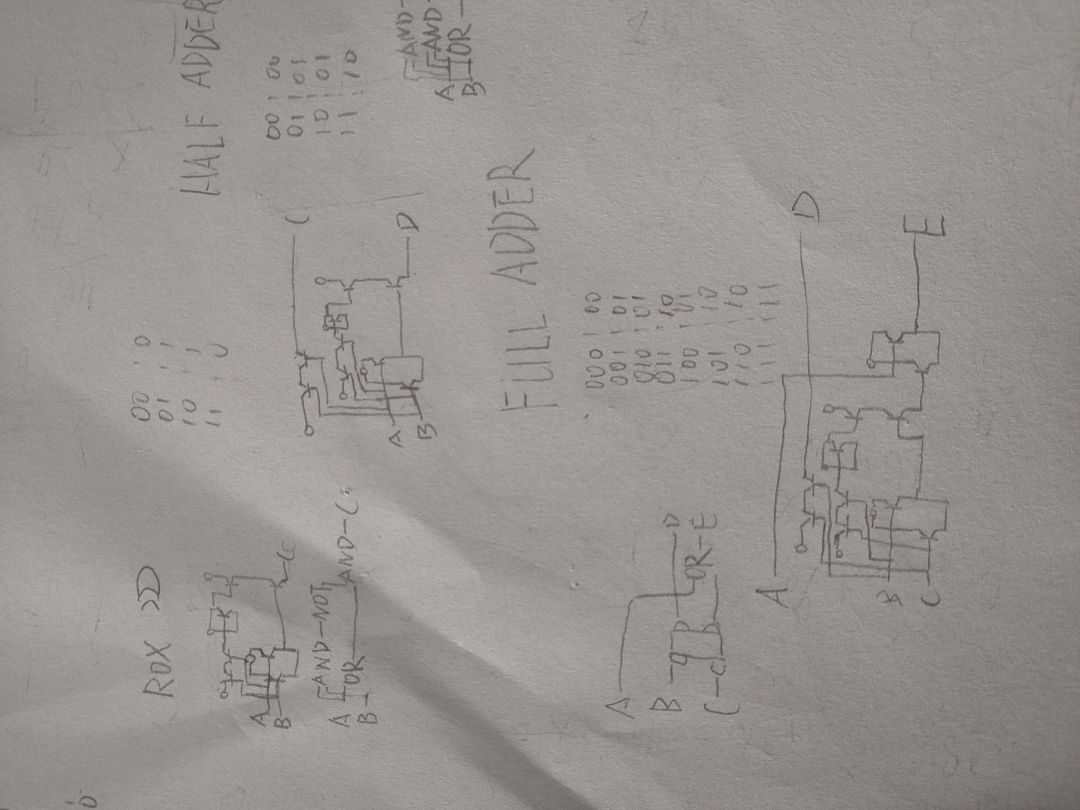 ROX
00 : 0
01 : 1
10 : 1
11 : 0
A
B
C
AND-NOT
A
OR
AND-C
B
HALF ADDER
00 | 00
01 | 01
10 | 01
11 | 10
C
A
D
B
AND-
AND-
A
OR-
B
FULL ADDER
000 | 00
001 | 01
010 | 01
011 | 10
100 | 01
101 | 10
110 | 10
111 | 11
A
B
D
OR-E
C
A
D
B
C
E